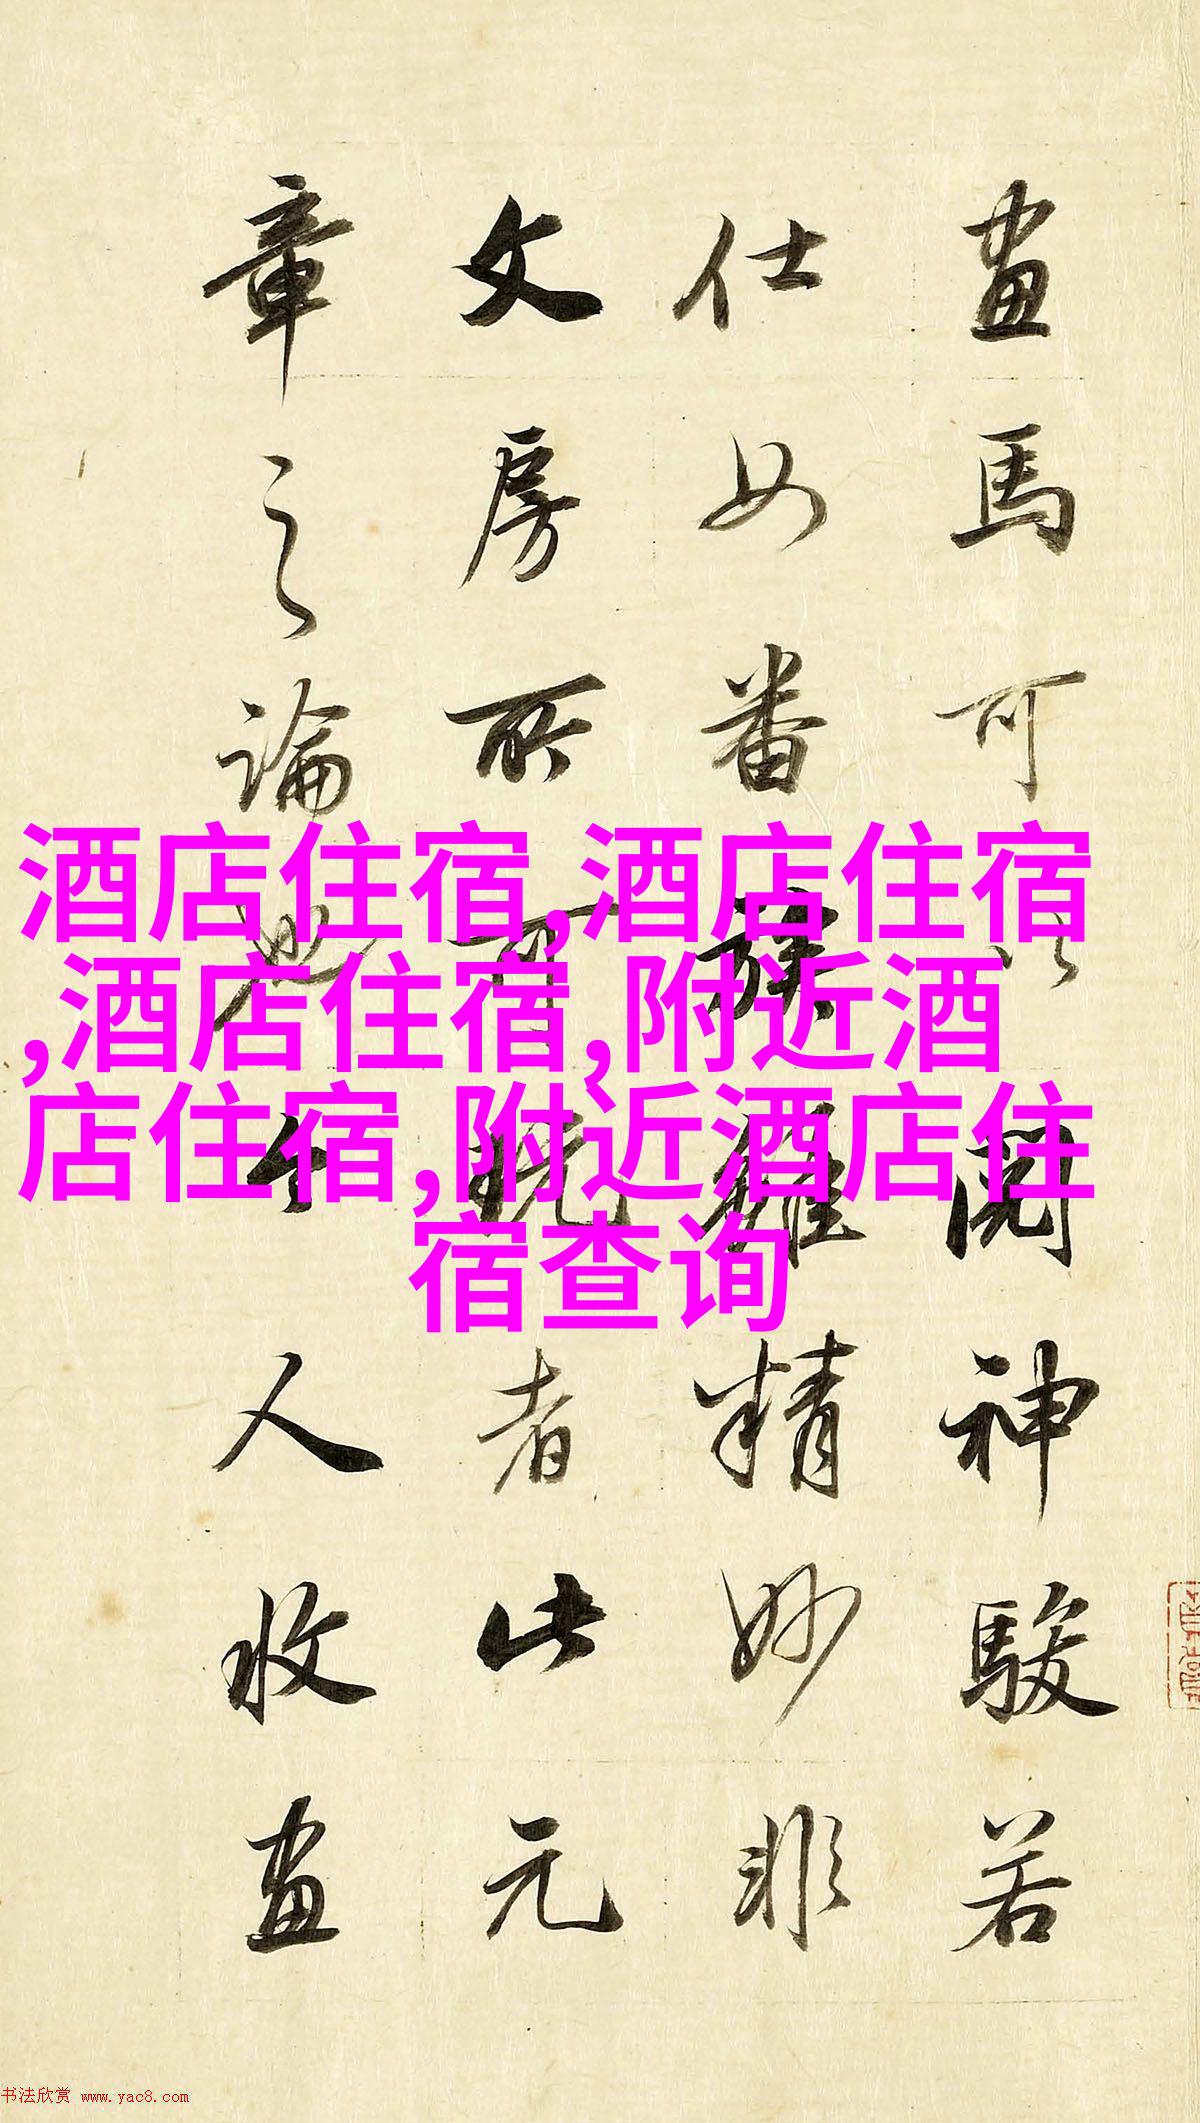 畫馬可以閱神駿若
仕女番族雖精妙非
文房所可玩者此元
章之論也今人收畫
酒店住宿,酒店住宿
,酒店住宿,附近酒
店住宿,附近酒店住
宿查询
书法欣赏 www.yac8.com